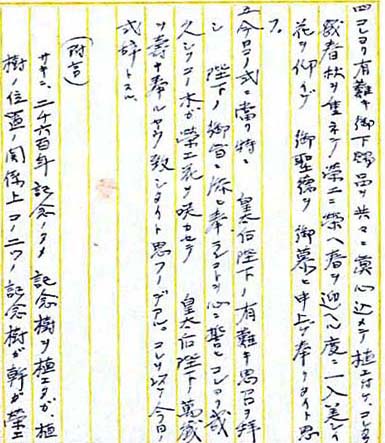 四 コレヨリ有難キ御下賜品ヲ共々ニ真心込メテ植工付ケ、コレヨリ
幾春秋ヲ重ネテ栄エニ栄ヘ春ヲ迎ヘル度ニ一入美シ
花ヲ仰イデ 御聖徳ヲ御慕ヒ申上ゲ奉リタイト思
フ。
五 今日ノ式ニ当リ特ニ 皇太后陛下ノ有難キ思召ヲ拝
シ 陛下ノ御旨ニ添ヒ奉ランコトヲ心ニ誓ヒコレヨリ幾
久シクコノ木ガ栄エ花ヲ咲カセテ 皇太后陛下ノ萬歳
ヲ寿ギ奉ルヤウ致シタイト思フノデアル。コレヲ以テ今日ノ
式辞トスル
(附言)
サキニ二千六百年記念ノタメ記念樹ヲ植エタガ、植
樹ノ位置ノ関係上コノ二ツノ記念樹ガ幹ガ栄エ